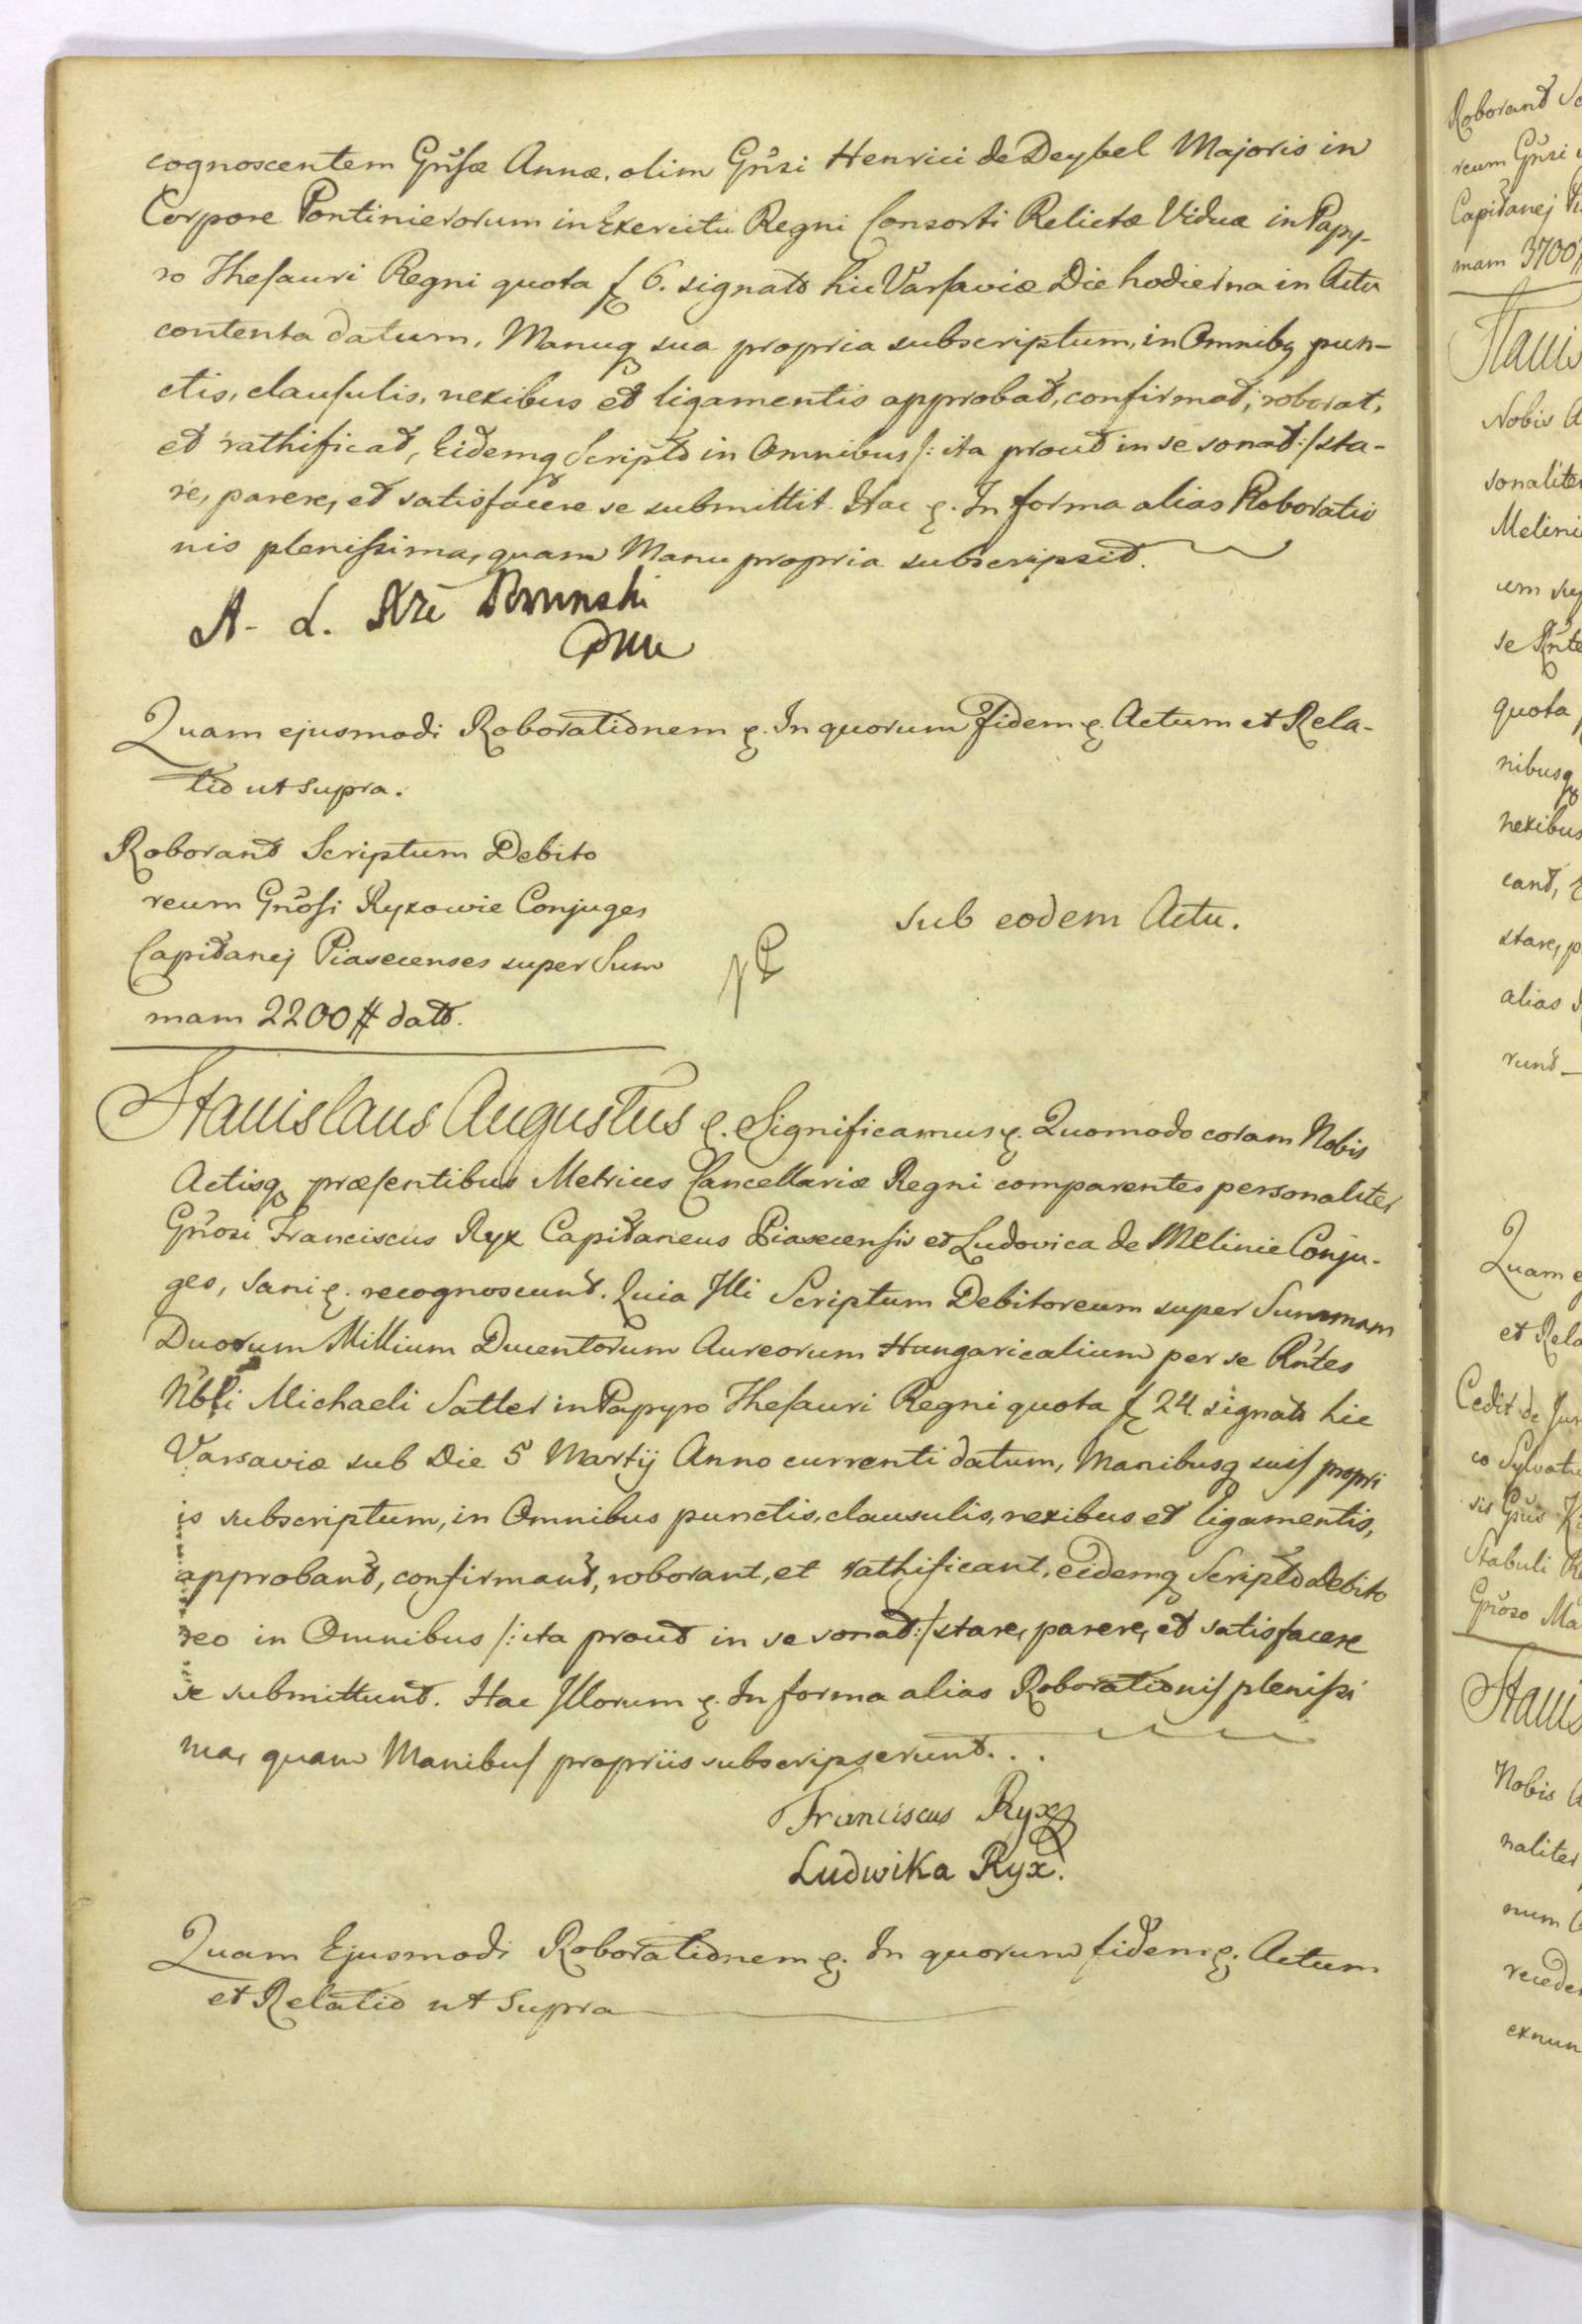 cognoscentem Gñsæ Annæ, olim Gñsi Henrici de Deybel Majoris in
Corpore Pontinierorum in Exercitu Regni Consorti Relictæ Viduæ in Papy-
ro Thesauri Regni quota f 6. signato hic Varsaviæ Die hodierna in Actu
contenta datum, Manuq sua propria subscriptum, in Omnibq pun-
ctis, clausulis, nexibus et ligamentis approbat, confirmat, roborat,
et rathificat, Eidemq Scripto in Omnibus /: ita prout in se sonat :/ sta-
re, parere, et satisfacere se submittit. Hac ę. In forma alias Roboratio
nis plenissima, quam Manu propria subscripsit.
A. L.
Quam ejusmodi Roborationem ę. In quorum Fidem ę. Actum et Rela-
tio ut supra.
Roborant Scriptum Debito
reum Gñosi Ryxowie Conjuges
Capitanej Piasecenses super Sum
mam 2200 # dato.
Sub eodem Actu.
Stanislaus Augustus ę. Significamus ę. Quomodo coram Nobis
Actisq præsentibus Metrices Cancellariæ Regni comparentes personaliter
Gñosi Franciscus Ryx Capitaneus Piasecensis et Ludovica de Melinie Conju-
ges, Sani ę. recognoscunt. Quia Illi Scriptum Debitoreum super Summam
Duorum Millium Ducentorum Aureorum Hungaricalium per se Rñtes
Nbli Michaeli Satler in Papyro Thesauri Regni quota f 24. signato hic
Varsaviæ sub Die 5 Martij Anno currenti datum, Manibusq suis propri
is subscriptum, in Omnibus punctis, clausulis, nexibus et ligamentis,
approbant, confirmant, roborant, et rathificant, eidemq Scripto Debito
reo in Omnibus /: ita prout in se sonat :/ stare, parere, et satisfacere
se submittunt. Hac Illorum ę. In forma alias Roborationis plenissi
ma, quam Manibus propriis subscripserunt...
Franciscus Ryx
Ludwika Ryx.
Quam Ejusmodi Roborationem ę. In quorum fidem ę. Actum
et Relatio ut Supra
Roborant
reum Gñsi
Capitanej
mam 3700 #
Nobis
quota
nibusq
nexibus
cant,
stare,
alias
runt
Quam
et Rela
Cedit de
sis Gñs
Stabuli
Gñoso
Nobis
naliter
num